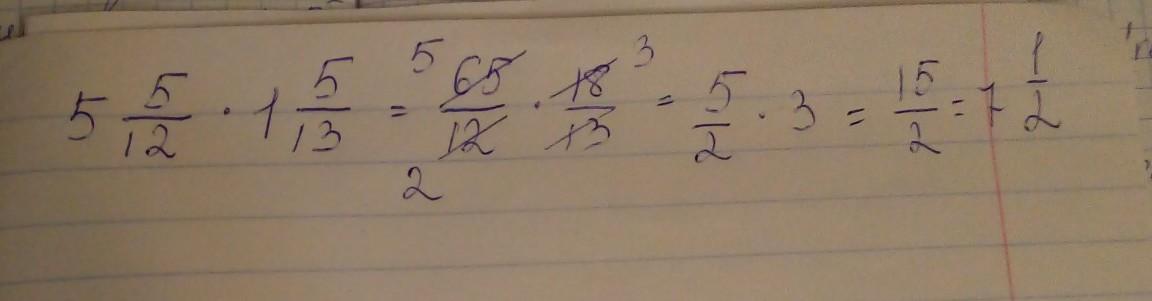 5 5/12 · 1 5/13 = 5 65/12 2 · 18/13 3 = 5/2 · 3 = 15/2 = 7 1/2